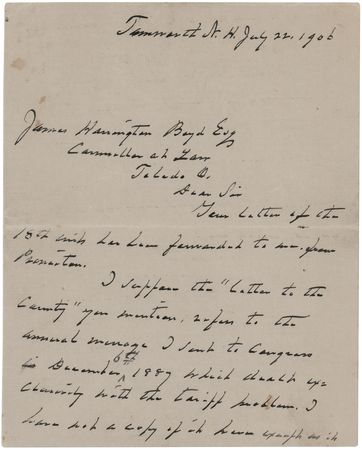 Tamworth N.H. July 22. 1906
James Harrington Boyd Esq
Counsellor at Law
Toledo O.
Dear Sir
Your letter of the
18th inst has been forwarded to me from
Princeton.
I suppose the "Letter to the
Country" you mention, refers to the
annual message I sent to Congress
in December 6th 1887 which dealt ex-
clusively with the tariff problem. I
have not a copy of it here except as it